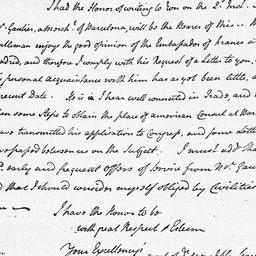 I had the Honor of writing to You on the 2d. Inst.
Mr. Gautier, a Merch.t of Barcelona, will be the Bearer of this
Gentleman enjoys the good opinion of the Embassador of France a
Madrid, and therefore I comply with his Request of a Letter to you.
personal acquaintance with him has as yet been little, a
recent Date. He is I hear well connected in Trade and
taken some Steps to obtain the place of american Consul at Bar
have transmitted his application to Congress, and some Letters
passed between us on the Subject. I must add
early and frequent offers of Service from Mr. Gau
and that I should consider myself obliged by Civilities
I have the Honor to be
with great Respect & Esteem
Your Excellency's